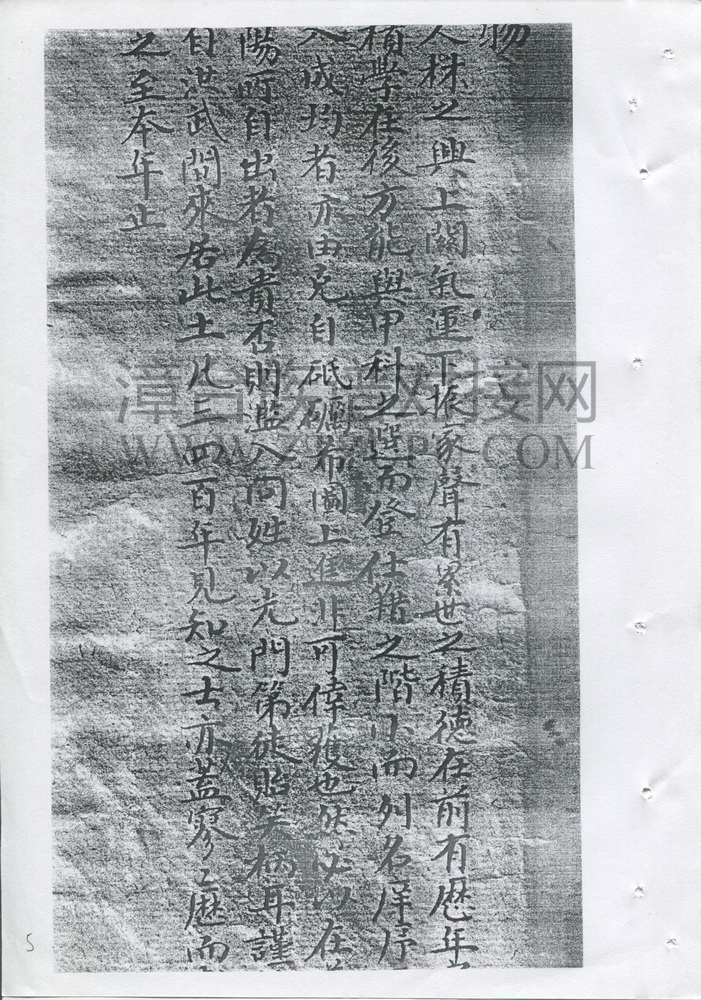 物
人材之興上關氣運下振家聲有累世之積德在前有歷年
積學在後方能與甲科之選而登仕籍之階小而列名庠序
入成均者亦由克自砥礪布圖上進非可倖獲也然必以在
陽所自出者為貴否則濫入同姓以光門第徒貽笑柄耳謹
自洪武間來居此土凡三四百年見知之士亦蓋寥〻歷而
之至本年止
漳台 接网
WWW. .COM
5